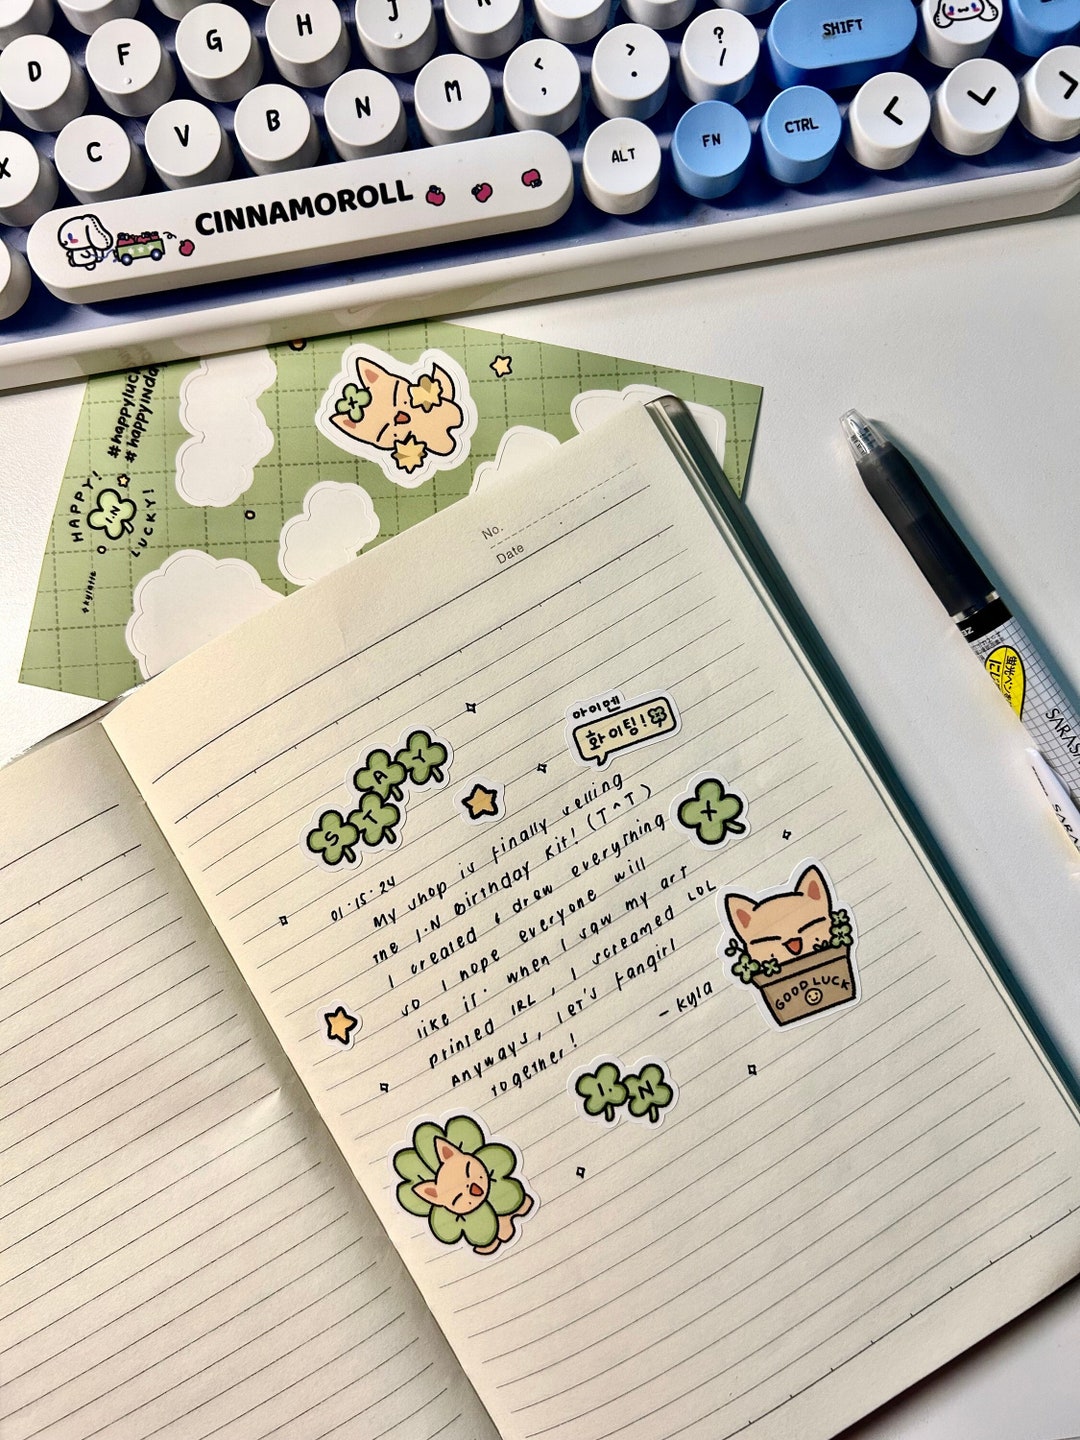 D F G H J
X C V B N M < , > . ? / SHIFT
ALT FN CTRL
CINNAMOROLL
#happyluc
#happyINday
HAPPY!
I.N
LUCKY!
No.
Date
STAY
아이엔
화이팅!
01.15.24
My shop is finally selling
the I.N Birthday Kit! (T^T)
I created & drew everything
so I hope everyone will
like it. when I saw my art
printed IRL, I screamed LOL
Anyways, let's fangirl
together!
- Kyla
GOOD LUCK
I.N
SARAS
SARA